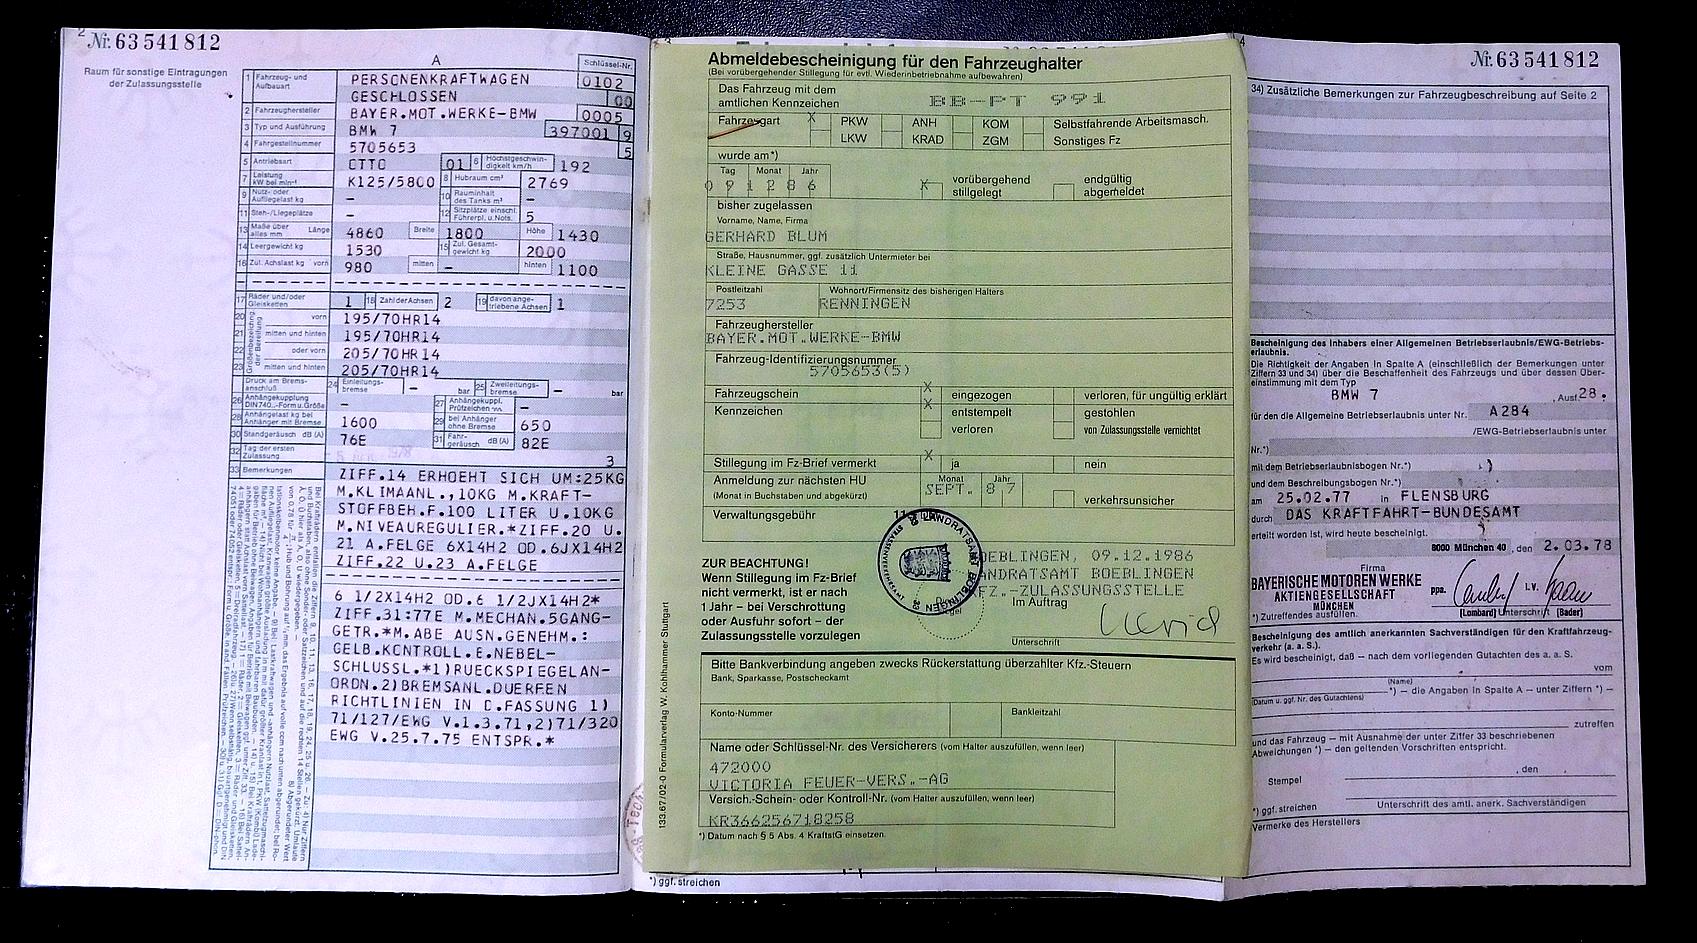 2
Nr. 63541812
Raum für sonstige Eintragungen
der Zulassungsstelle
A
Schlüssel-Nr.
1 Fahrzeug- und Aufbauart PERSONENKRAFTWAGEN 0102
GESCHLOSSEN 00
2 Fahrzeughersteller BAYER.MOT.WERKE-BMW 0005
3 Typ und Ausführung BMW 7 397001 9
4 Fahrgestellnummer 5705653 5
5 Antriebsart OTTO 01 6 Höchstgeschwindigkeit km/h 192
7 Leistung kW bei min⁻¹ K125/5800 8 Hubraum cm³ 2769
9 Nutz- oder Aufliegelast kg – 10 Rauminhalt des Tanks m³ –
11 Steh-/Liegeplätze – 12 Sitzplätze einschl. Führerpl. u. Nots. 5
13 Maße über alles mm Länge 4860 Breite 1800 Höhe 1430
14 Leergewicht kg 1530 15 Zul. Gesamtgewicht kg 2000
16 Zul. Achslast kg vorn 980 mitten – hinten 1100
17 Räder und/oder Gleisketten 1 18 Zahl der Achsen 2 19 davon angetriebene Achsen 1
20 vorn 195/70HR14
21 mitten und hinten 195/70HR14
22 oder vorn 205/70HR14
23 mitten und hinten 205/70HR14
Druck am Bremsanschluß 24 Einleitungsbremse – bar 25 Zweileitungsbremse – bar
26 Anhängekupplung DIN 740.., Form u. Größe – 27 Anhängekuppl. Prüfzeichen –
28 Anhängelast kg bei Anhänger mit Bremse 1600 29 bei Anhänger ohne Bremse 650
30 Standgeräusch dB (A) 76E 31 Fahrgeräusch dB (A) 82E
32 Tag der ersten Zulassung
3
33 Bemerkungen ZIFF.14 ERHOEHT SICH UM:25KG
M.KLIMAANL.,10KG M.KRAFT-
STOFFBEH.F.100 LITER U.10KG
M.NIVEAUREGULIER.*ZIFF.20 U.
21 A.FELGE 6X14H2 OD.6JX14H2
ZIFF.22 U.23 A.FELGE
6 1/2X14H2 OD.6 1/2JX14H2*
ZIFF.31:77E M.MECHAN.5GANG-
GETR.*M.ABE AUSN.GENEHM.:
GELB.KONTROLL.E.NEBEL-
SCHLUSSL.*1)RUECKSPIEGELAN-
ORDN.2)BREMSANL.DUERFEN
RICHTLINIEN IN D.FASSUNG 1)
71/127/EWG V.1.3.71,2)71/320
EWG V.25.7.75 ENTSPR.*
3
Abmeldebescheinigung für den Fahrzeughalter
(Bei vorübergehender Stillegung für evtl. Wiederinbetriebnahme aufbewahren)
Das Fahrzeug mit dem
amtlichen Kennzeichen BB-PT 991
Fahrzeugart X PKW ANH KOM Selbstfahrende Arbeitsmasch.
LKW KRAD ZGM Sonstiges Fz
wurde am*)
Tag Monat Jahr
091286 X vorübergehend stillgelegt endgültig abgemeldet
bisher zugelassen
Vorname, Name, Firma
GERHARD BLUM
Straße, Hausnummer, ggf. zusätzlich Untermieter bei
KLEINE GASSE 11
Postleitzahl Wohnort/Firmensitz des bisherigen Halters
7253 RENNINGEN
Fahrzeughersteller
BAYER.MOT.WERKE-BMW
Fahrzeug-Identifizierungsnummer
5705653(5)
Fahrzeugschein X eingezogen verloren, für ungültig erklärt
Kennzeichen X entstempelt gestohlen
verloren von Zulassungsstelle vernichtet
Stillegung im Fz-Brief vermerkt X ja nein
Anmeldung zur nächsten HU Monat Jahr
(Monat in Buchstaben und abgekürzt) SEPT. 87 verkehrsunsicher
Verwaltungsgebühr
LANDRATSAMT BÖBLINGEN
OEBLINGEN, 09.12.1986
ANDRATSAMT BOEBLINGEN
FZ.-ZULASSUNGSSTELLE
Im Auftrag
ZUR BEACHTUNG!
Wenn Stillegung im Fz-Brief
nicht vermerkt, ist er nach
1 Jahr – bei Verschrottung
oder Ausfuhr sofort – der
Zulassungsstelle vorzulegen
Unterschrift
Bitte Bankverbindung angeben zwecks Rückerstattung überzahlter Kfz.-Steuern
Bank, Sparkasse, Postscheckamt
Konto-Nummer Bankleitzahl
Name oder Schlüssel-Nr. des Versicherers (vom Halter auszufüllen, wenn leer)
472000
VICTORIA FEUER-VERS.-AG
Versich.-Schein- oder Kontroll-Nr. (vom Halter auszufüllen, wenn leer)
KR366256718258
*) Datum nach § 5 Abs. 4 KraftStG einsetzen.
133.67/02-0 Formularverlag W. Kohlhammer Stuttgart
*) ggf. streichen
4
Nr. 63541812
34) Zusätzliche Bemerkungen zur Fahrzeugbeschreibung auf Seite 2
Bescheinigung des Inhabers einer Allgemeinen Betriebserlaubnis/EWG-Betriebs-
erlaubnis.
Die Richtigkeit der Angaben in Spalte A (einschließlich der Bemerkungen unter
Ziffern 33 und 34) über die Beschaffenheit des Fahrzeugs und über dessen Über-
einstimmung mit dem Typ
BMW 7 , Ausf. 28.
für den die Allgemeine Betriebserlaubnis unter Nr. A 284
/EWG-Betriebserlaubnis unter
Nr.*)
mit dem Betriebserlaubnisbogen Nr.*)
und dem Beschreibungsbogen Nr.*)
am 25.02.77 in FLENSBURG
durch DAS KRAFTFAHRT-BUNDESAMT
erteilt worden ist, wird heute bescheinigt.
8000 München 40, den 2.03.78
Firma
BAYERISCHE MOTOREN WERKE
AKTIENGESELLSCHAFT
MÜNCHEN
ppa. i.V.
(Lombard) Unterschrift (Bader)
*) Zutreffendes ausfüllen.
Bescheinigung des amtlich anerkannten Sachverständigen für den Kraftfahrzeug-
verkehr (a. a. S.).
Es wird bescheinigt, daß – nach dem vorliegenden Gutachten des a. a. S.
vom
(Name)
*) – die Angaben in Spalte A – unter Ziffern *) –
(Datum u. ggf. Nr. des Gutachtens)
zutreffen
und das Fahrzeug – mit Ausnahme der unter Ziffer 33 beschriebenen
Abweichungen *) – den geltenden Vorschriften entspricht.
, den
Stempel
Unterschrift des amtl. anerk. Sachverständigen
*) ggf. streichen
Vermerke des Herstellers